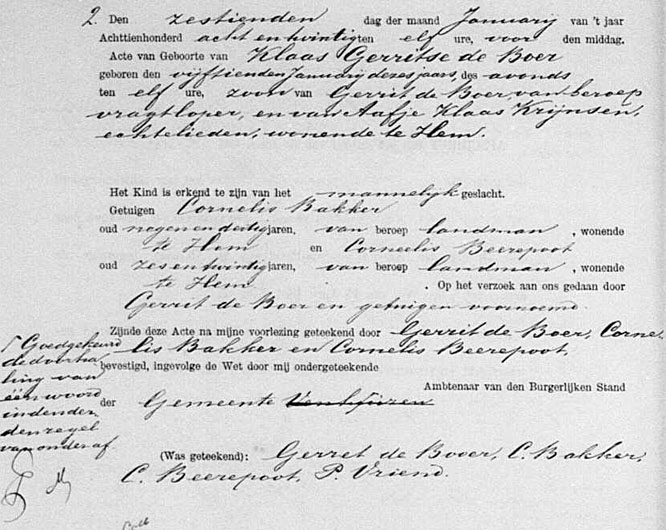 2. Den zestienden dag der maand Januarij van 't jaar
Achttienhonderd acht en twintig ten elf ure, voor den middag.
Acte van Geboorte van Klaas Gerritse de Boer
geboren den vijftienden Januarij dezes jaars, des avonds
ten elf ure, zoon van Gerrit de Boer, van beroep
vragtloper, en van Aafje Klaas Krijnsen,
echtelieden, wonende te Hem.
Het Kind is erkend te zijn van het mannelijk geslacht.
Getuigen Cornelis Bakker
oud negen en dertig jaren, van beroep landman, wonende
te Hem en Corneelis Beerepoot
oud zes en twintig jaren, van beroep landman, wonende
te Hem. Op het verzoek aan ons gedaan door
Gerrit de Boer en getuigen voornoemd.
Zijnde deze Acte na mijne voorlezing geteekend door Gerrit de Boer, Corne-
lis Bakker en Cornelis Beerepoot,
bevestigd, ingevolge de Wet door mij ondergeteekende
Ambtenaar van den Burgerlijken Stand
der Gemeente Venhuizen
(Was geteekend): Gerret de Booer, C. Bakker,
C. Beerepoot, P. Vriend.
Goedgekeurd
de doorha-
ling van
één woord
in den der-
den regel
van onder af.